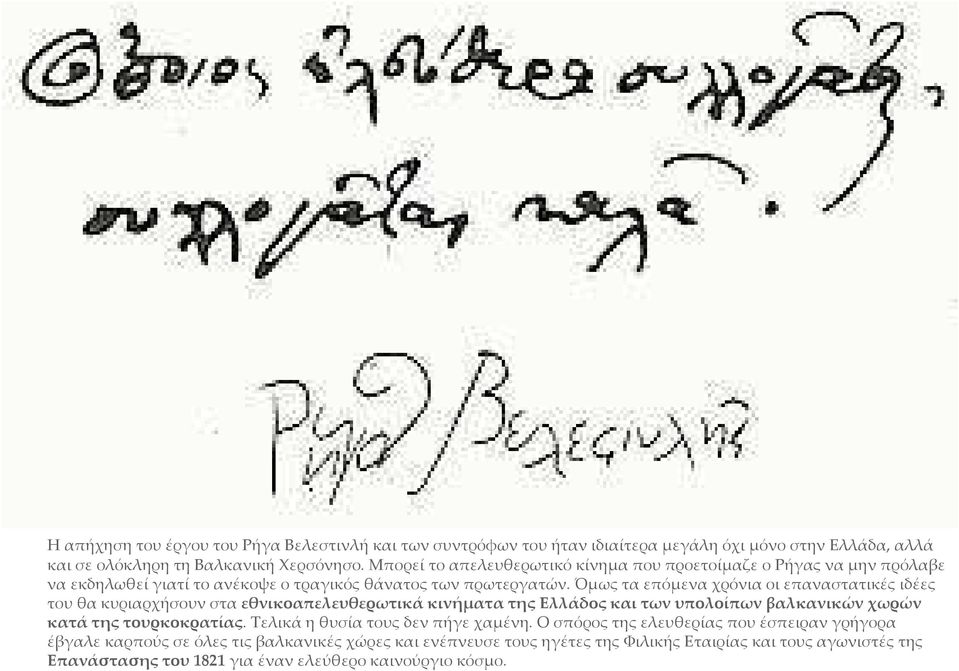 Ὅποιος ἐλεύθερα συλλογᾶται,
συλλογᾶται καλά.
Ρήγας Βελεςινλης
Η απήχηση του έργου του Ρήγα Βελεστινλή και των συντρόφων του ήταν ιδιαίτερα μεγάλη όχι μόνο στην Ελλάδα, αλλά
και σε ολόκληρη τη Βαλκανική Χερσόνησο. Μπορεί το απελευθερωτικό κίνημα που προετοίμαζε ο Ρήγας να μην πρόλαβε
να εκδηλωθεί γιατί το ανέκοψε ο τραγικός θάνατος των πρωτεργατών. Όμως τα επόμενα χρόνια οι επαναστατικές ιδέες
του θα κυριαρχήσουν στα εθνικοαπελευθερωτικά κινήματα της Ελλάδος και των υπολοίπων βαλκανικών χωρών
κατά της τουρκοκρατίας. Τελικά η θυσία τους δεν πήγε χαμένη. Ο σπόρος της ελευθερίας που έσπειραν γρήγορα
έβγαλε καρπούς σε όλες τις βαλκανικές χώρες και ενέπνευσε τους ηγέτες της Φιλικής Εταιρίας και τους αγωνιστές της
Επανάστασης του 1821 για έναν ελεύθερο καινούργιο κόσμο.